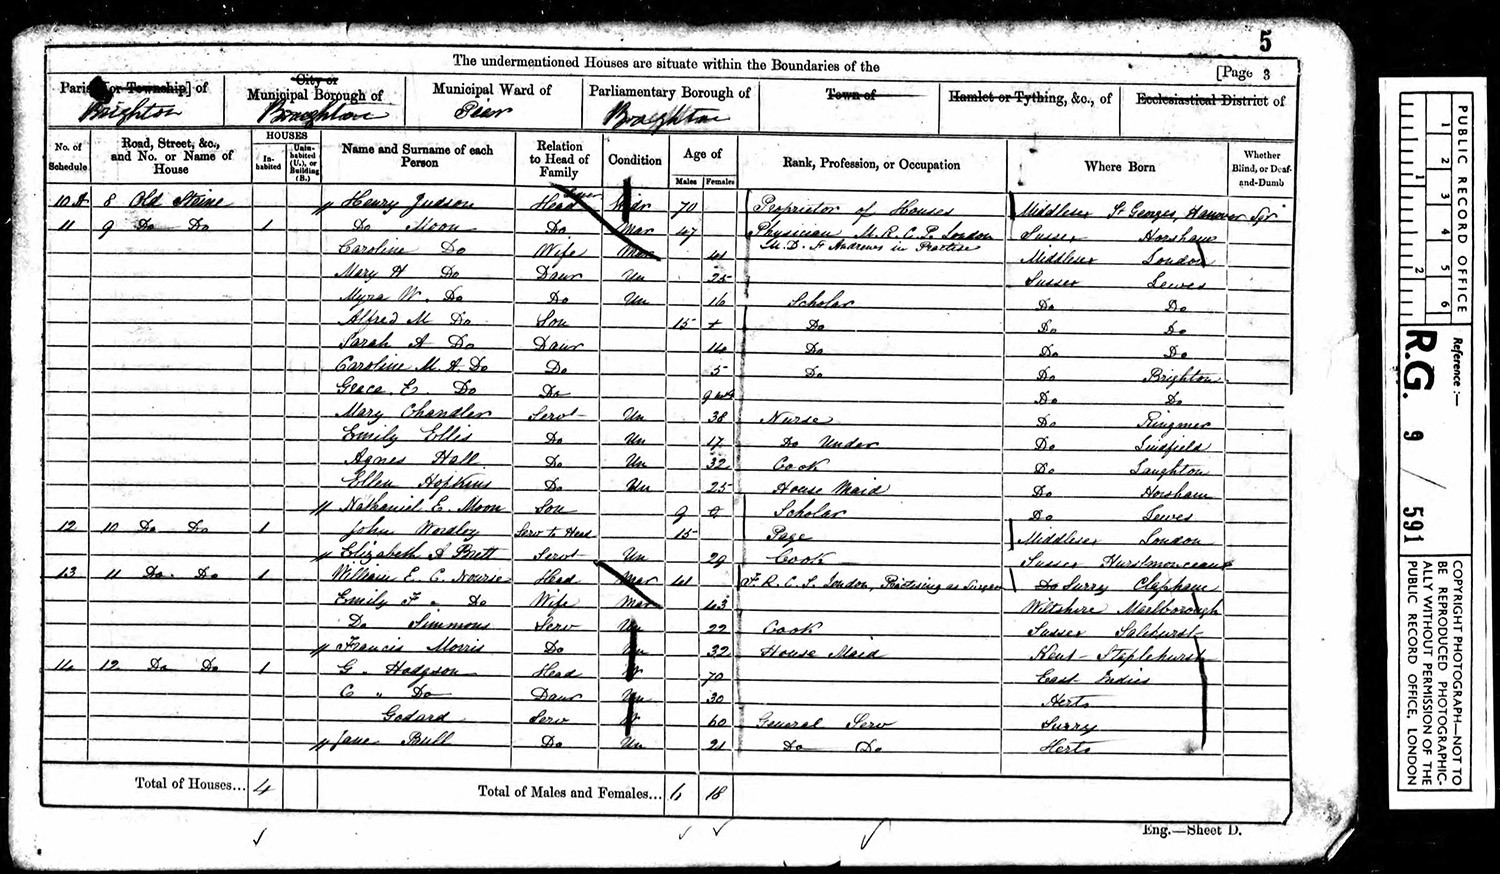 5
The undermentioned Houses are situate within the Boundaries of the
[Page 3
Parish [or Township] of
City or Municipal Borough of
Municipal Ward of
Parliamentary Borough of
Town of
Hamlet or Tything, &c., of
Ecclesiastical District of
Brighton Brighton Pier Brighton
No. of Schedule
Road, Street, &c., and No. or Name of House
HOUSES
Inhabited
Uninhabited (U.), or Building (B.)
Name and Surname of each Person
Relation to Head of Family
Condition
Age of
Males Females
Rank, Profession, or Occupation
Where Born
Whether Blind, or Deaf-and-Dumb
10 A 8 Old Steine Henry Judson Head Widr 70 Proprietor of Houses Middlesex St Georges, Hanover Sqr
11 9 Do Do 1 Do Moon Do Mar 47 Physician M.R.C.P. London
M.D. St Andrews in Practise Sussex Horsham
Caroline Do Wife Mar 41 Middlesex London
Mary H Do Daur Un 25 Sussex Lewes
Myra W. Do Do Un 16 Scholar Do Do
Alfred M Do Son 15 Do Do Do
Sarah A Do Daur 14 Do Do Do
Caroline M. A Do Do 5 Do Do Brighton
Grace E Do Do 9 wks Do Do
Mary Chandler Servt Un 38 Nurse Do Ringmer
Emily Ellis Do Un 17 Do Under Do Lindfield
Agnes Hall Do Un 32 Cook Do Laughton
Ellen Hopkins Do Un 25 House Maid Do Horsham
Nathaniel E. Moon Son 9 Scholar Do Lewes
12 10 Do Do 1 John Wordley Serv to Head 15 Page Middlesex London
Elizabeth A Brett Servt Un 29 Cook Sussex Hurstmonceaux
13 11 Do Do 1 William E. C. Nourse Head Mar 41 F.R.C.S. London, Practising as Surgeon Do Surry Clapham
Emily F " Do Wife Mar 43 Wiltshire Marlborough
Do Simmons Serv Un 22 Cook Sussex Salehurst
Francis Morris Do Un 32 House Maid Kent Staplehurst
14 12 Do Do 1 G. Hodgson Head W 70 East Indies
C " Do Daur Un 30 Herts
Godard Serv W 60 General Serv Surry
Jane Bull Do Un 21 Do Do Herts
Total of Houses... 4
Total of Males and Females... 6 18
Eng.—Sheet D.
PUBLIC RECORD OFFICE
1 2 3 4 5 6
1 2
Reference:—
R.G. 9 / 591
COPYRIGHT PHOTOGRAPH—NOT TO
BE REPRODUCED PHOTOGRAPHIC-
ALLY WITHOUT PERMISSION OF THE
PUBLIC RECORD OFFICE, LONDON